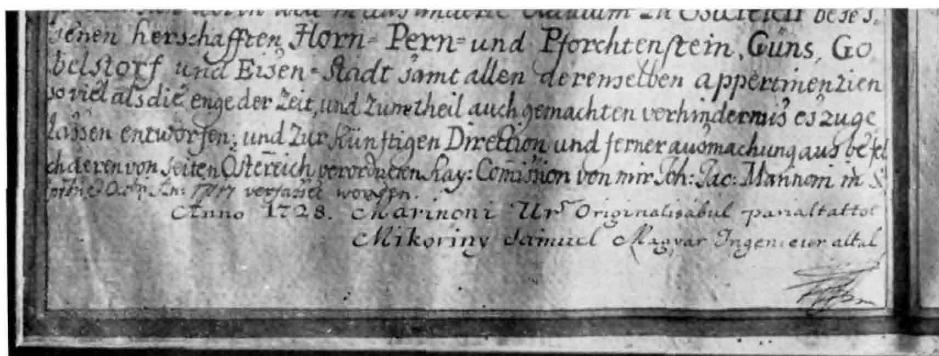 und in das undere
jenen herschafften, Horn= Pern= und Pforchtenstein, Güns, Go
belstorf und Eisen=Stadt samt allen derenselben appertinenzien
so viel als die enge der Zeit, und zum theil auch gemachten verhindernis es zuge
lassen entworfen; und zur künftigen Direction und ferner ausmachung aus befel
ch deren von seiten Östereich verordneten Kay: Comission von mir Joh: Jac: Marinoni in
1717 verfasset worden.
Anno 1728. Marinoni Ur Originalisábul pariáltattot
Mikoviny Sámuel Magyar Ingenieur által